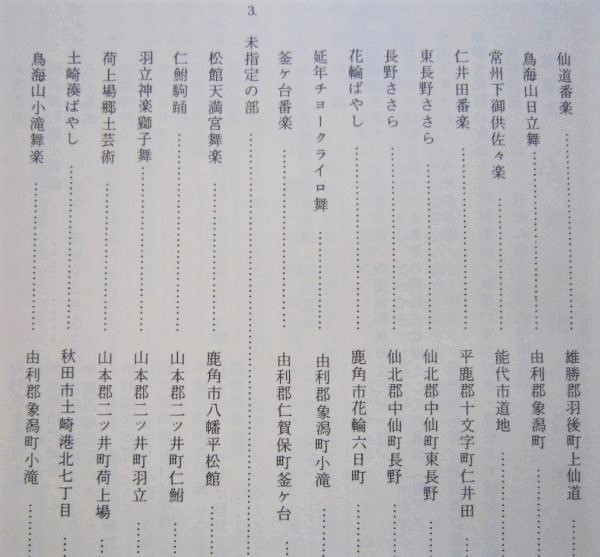 仙道番楽……………………………雄勝郡羽後町上仙道……
鳥海山日立舞……………………………由利郡象潟町……
常州下御供佐々楽……………………………能代市道地……
仁井田番楽……………………………平鹿郡十文字町仁井田……
東長野ささら……………………………仙北郡中仙町東長野……
長野ささら……………………………仙北郡中仙町長野……
花輪ばやし……………………………鹿角市花輪六日町……
延年チョークライロ舞……………………………由利郡象潟町小滝……
釜ケ台番楽……………………………由利郡仁賀保町釜ケ台……
3. 未指定の部……………………………
松館天満宮舞楽……………………………鹿角市八幡平松館……
仁鮒駒踊……………………………山本郡二ッ井町仁鮒……
羽立神楽獅子舞……………………………山本郡二ッ井町羽立……
荷上場郷土芸術……………………………山本郡二ッ井町荷上場……
土崎湊ばやし……………………………秋田市土崎港北七丁目……
鳥海山小滝舞楽……………………………由利郡象潟町小滝……